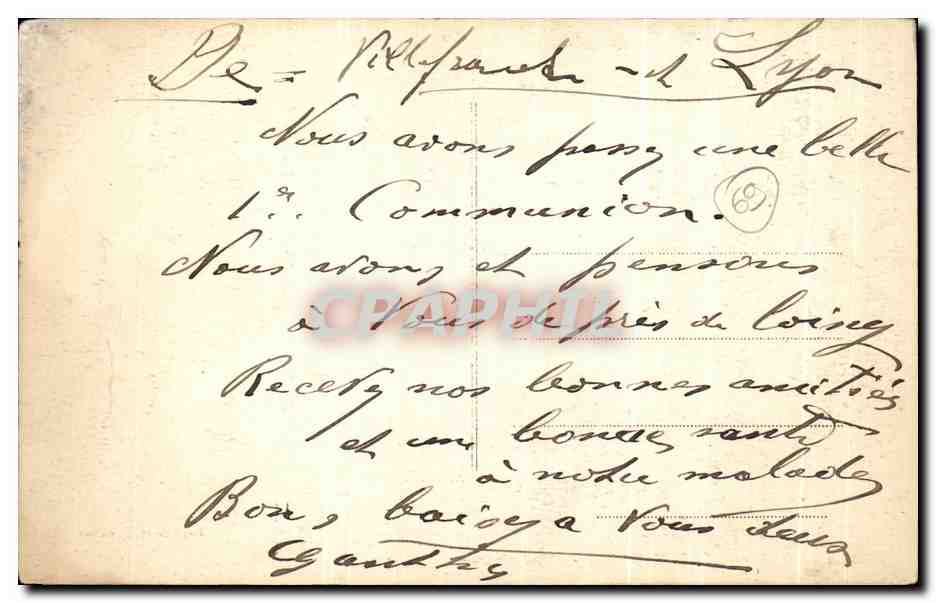 De = Villefranche - et Lyon
Nous avons passé une belle
1re. Communion.
69
Nous avons et pensons
à Vous de près du loing
CPAPHIL
Recevez nos bonnes amitiés
et une bonne santé
à notre malade
Bons baisers a Vous deux